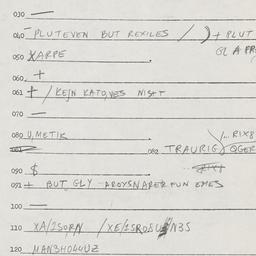 030 —
040 - PLUTEVEN BUT REXILES / ) + PLUT
050 XARPE . GL A PR
060 +
061 + / KEJN KATO,VES NISTT
070 —
080 U,METIK . / .. RIX8
082 TRAURIG QGER
090 $
091 + BUT GLY - AROYSNARER FUN EMES
100 —
110 XA/ISORN /XE/ISROEU N3S
120 MAN3HO44UZ